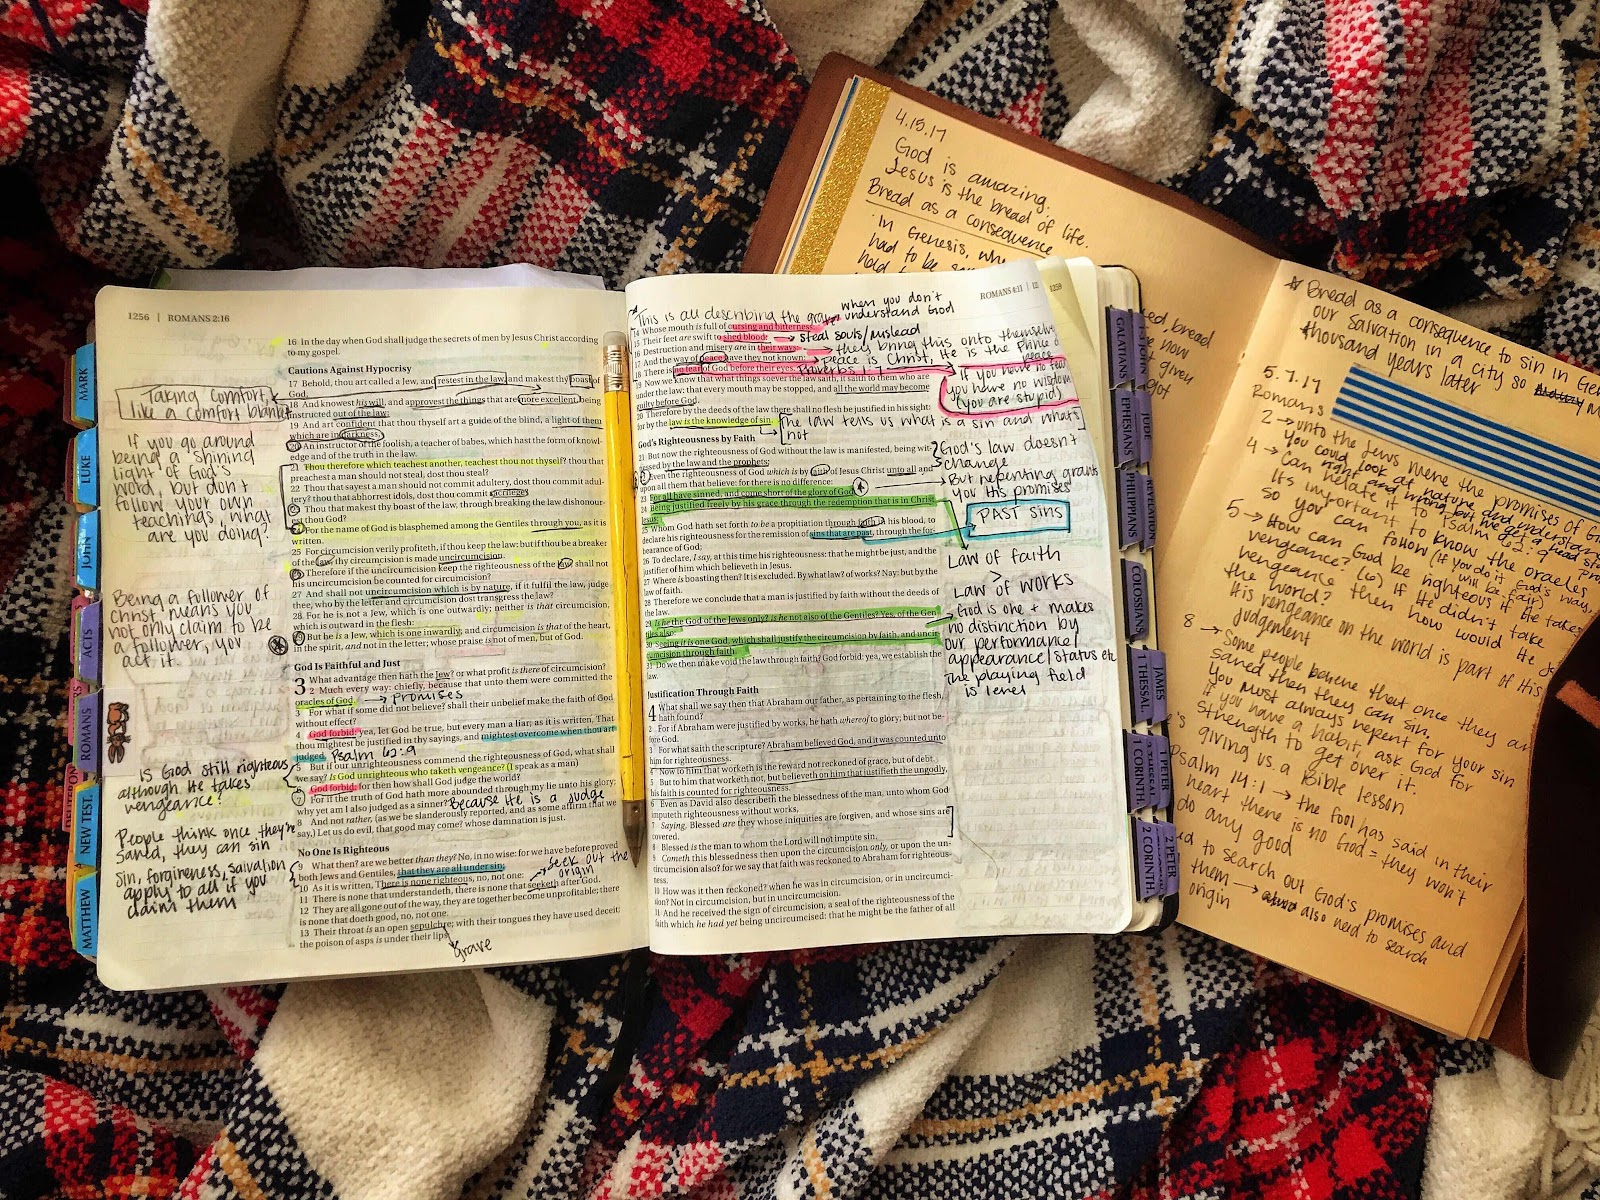 1256 | ROMANS 2:16
16 in the day when God shall judge the secrets of men by Jesus Christ according
to my gospel.
Cautions Against Hypocrisy
17 Behold, thou art called a Jew, and restest in the law, and makest thy boast of
God,
18 And knowest his will, and approvest the things that are more excellent, being
instructed out of the law;
19 And art confident that thou thyself art a guide of the blind, a light of them
which are in darkness,
20 An instructor of the foolish, a teacher of babes, which hast the form of knowl-
edge and of the truth in the law.
21 Thou therefore which teachest another, teachest thou not thyself? thou that
preachest a man should not steal, dost thou steal?
22 Thou that sayest a man should not commit adultery, dost thou commit adul-
tery? thou that abhorrest idols, dost thou commit sacrilege?
23 Thou that makest thy boast of the law, through breaking the law dishonour-
est thou God?
24 For the name of God is blasphemed among the Gentiles through you, as it is
written.
25 For circumcision verily profiteth, if thou keep the law: but if thou be a breaker
of the law, thy circumcision is made uncircumcision.
26 Therefore if the uncircumcision keep the righteousness of the law, shall not
his uncircumcision be counted for circumcision?
27 And shall not uncircumcision which is by nature, if it fulfil the law, judge
thee, who by the letter and circumcision dost transgress the law?
28 For he is not a Jew, which is one outwardly; neither is that circumcision,
which is outward in the flesh:
29 But he is a Jew, which is one inwardly; and circumcision is that of the heart,
in the spirit, and not in the letter; whose praise is not of men, but of God.
God Is Faithful and Just
3 What advantage then hath the Jew? or what profit is there of circumcision?
2 Much every way: chiefly, because that unto them were committed the
oracles of God. → promises
3 For what if some did not believe? shall their unbelief make the faith of God
without effect?
4 God forbid: yea, let God be true, but every man a liar; as it is written, That
thou mightest be justified in thy sayings, and mightest overcome when thou art
judged.
5 But if our unrighteousness commend the righteousness of God, what shall
we say? Is God unrighteous who taketh vengeance? (I speak as a man)
6 God forbid: for then how shall God judge the world?
7 For if the truth of God hath more abounded through my lie unto his glory;
why yet am I also judged as a sinner? Because He is a judge
8 And not rather, (as we be slanderously reported, and as some affirm that we
say,) Let us do evil, that good may come? whose damnation is just.
No One Is Righteous
9 What then? are we better than they? No, in no wise: for we have before proved
both Jews and Gentiles, that they are all under sin;
10 As it is written, There is none righteous, no, not one:
11 There is none that understandeth, there is none that seeketh after God.
12 They are all gone out of the way, they are together become unprofitable; there
is none that doeth good, no, not one.
13 Their throat is an open sepulchre; with their tongues they have used deceit;
the poison of asps is under their lips:
→ seek out the
origin
grave
Taking comfort,
like a comfort blanket
If you go around
being a shining
light of God's
word, but don't
follow your own
teachings, what
are you doing?
Being a follower of
Christ means you
not only claim to be
a follower, you
act it.
Is God still righteous
although He takes
vengeance?
People think once they're
saved, they can sin
Sin, forgiveness, salvation
apply to all if you
claim them
MARK
LUKE
JOHN
ACTS
ROMANS
NEW TEST.
MATTHEW
ROMANS 4:11 | 1259
This is all describing the
when you don't
understand God
14 Whose mouth is full of cursing and bitterness:
15 Their feet are swift to shed blood: → steal souls/mislead
16 Destruction and misery are in their ways: → they bring this onto themselves
17 And the way of peace have they not known: → peace is Christ, He is the Prince of
peace
18 There is no fear of God before their eyes. Proverbs 1:7
If you have no fear
you have no wisdom
(you are stupid)
19 Now we know that what things soever the law saith, it saith to them who are
under the law: that every mouth may be stopped, and all the world may become
guilty before God.
20 Therefore by the deeds of the law there shall no flesh be justified in his sight:
for by the law is the knowledge of sin.
The law tells us what is a sin and what's
not
God's Righteousness by Faith
21 But now the righteousness of God without the law is manifested, being wit-
nessed by the law and the prophets;
22 Even the righteousness of God which is by faith of Jesus Christ unto all and
upon all them that believe: for there is no difference:
23 For all have sinned, and come short of the glory of God;
24 Being justified freely by his grace through the redemption that is in Christ
Jesus:
25 Whom God hath set forth to be a propitiation through faith in his blood, to
declare his righteousness for the remission of sins that are past, through the for-
bearance of God;
26 To declare, I say, at this time his righteousness: that he might be just, and the
justifier of him which believeth in Jesus.
27 Where is boasting then? It is excluded. By what law? of works? Nay: but by the
law of faith.
28 Therefore we conclude that a man is justified by faith without the deeds of
the law.
29 Is he the God of the Jews only? is he not also of the Gentiles? Yes, of the Gen-
tiles also:
30 Seeing it is one God, which shall justify the circumcision by faith, and uncir-
cumcision through faith.
31 Do we then make void the law through faith? God forbid: yea, we establish the
law.
Justification Through Faith
4 What shall we say then that Abraham our father, as pertaining to the flesh,
hath found?
2 For if Abraham were justified by works, he hath whereof to glory; but not be-
fore God.
3 For what saith the scripture? Abraham believed God, and it was counted unto
him for righteousness.
4 Now to him that worketh is the reward not reckoned of grace, but of debt.
5 But to him that worketh not, but believeth on him that justifieth the ungodly,
his faith is counted for righteousness.
6 Even as David also describeth the blessedness of the man, unto whom God
imputeth righteousness without works,
7 Saying, Blessed are they whose iniquities are forgiven, and whose sins are
covered.
8 Blessed is the man to whom the Lord will not impute sin.
9 Cometh this blessedness then upon the circumcision only, or upon the un-
circumcision also? for we say that faith was reckoned to Abraham for righteous-
ness.
10 How was it then reckoned? when he was in circumcision, or in uncircumci-
sion? Not in circumcision, but in uncircumcision.
11 And he received the sign of circumcision, a seal of the righteousness of the
faith which he had yet being uncircumcised: that he might be the father of all
God's law doesn't
change
But repenting grants
you His promises
PAST SINS
Law of faith
>
Law of works
God is one + makes
no distinction by
our performance/
appearance/status etc
the playing field
is level
GALATIANS
EPHESIANS
PHILIPPIANS
COLOSSIANS
1 THESSAL.
1 CORINTH.
2 CORINTH.
JUDE
REVELATION
JAMES
1 PETER
2 PETER
4.15.17
God is amazing.
Jesus is the bread of life.
Bread as a consequence
In Genesis,
had to be
bread
now
given
got
☆ Bread as a consequence to sin in
our salvation in a city so
thousand years later
5.7.17
Romans
2 → unto the Jews were the promises of
You could look at nature and understand
right and wrong but we get a
4 → Can relate it to Psalm 62:9
Its important to know the oracles
so you can follow (if you do it God's way,
will be fair)
5 → How can God be righteous if He takes
vengeance? (6) if He didn't take
vengeance then how would He
the world?
His vengeance on the world is part of His
judgement
8 → Some people believe that once they
saved then they can sin.
You must always repent for your sin
If you have a habit, ask God for
strength to get over it.
giving us a Bible lesson
Psalm 14:1 → the fool has said in their
heart there is no God = they won't
do any good
to search out God's promises and
them → also need to search
origin